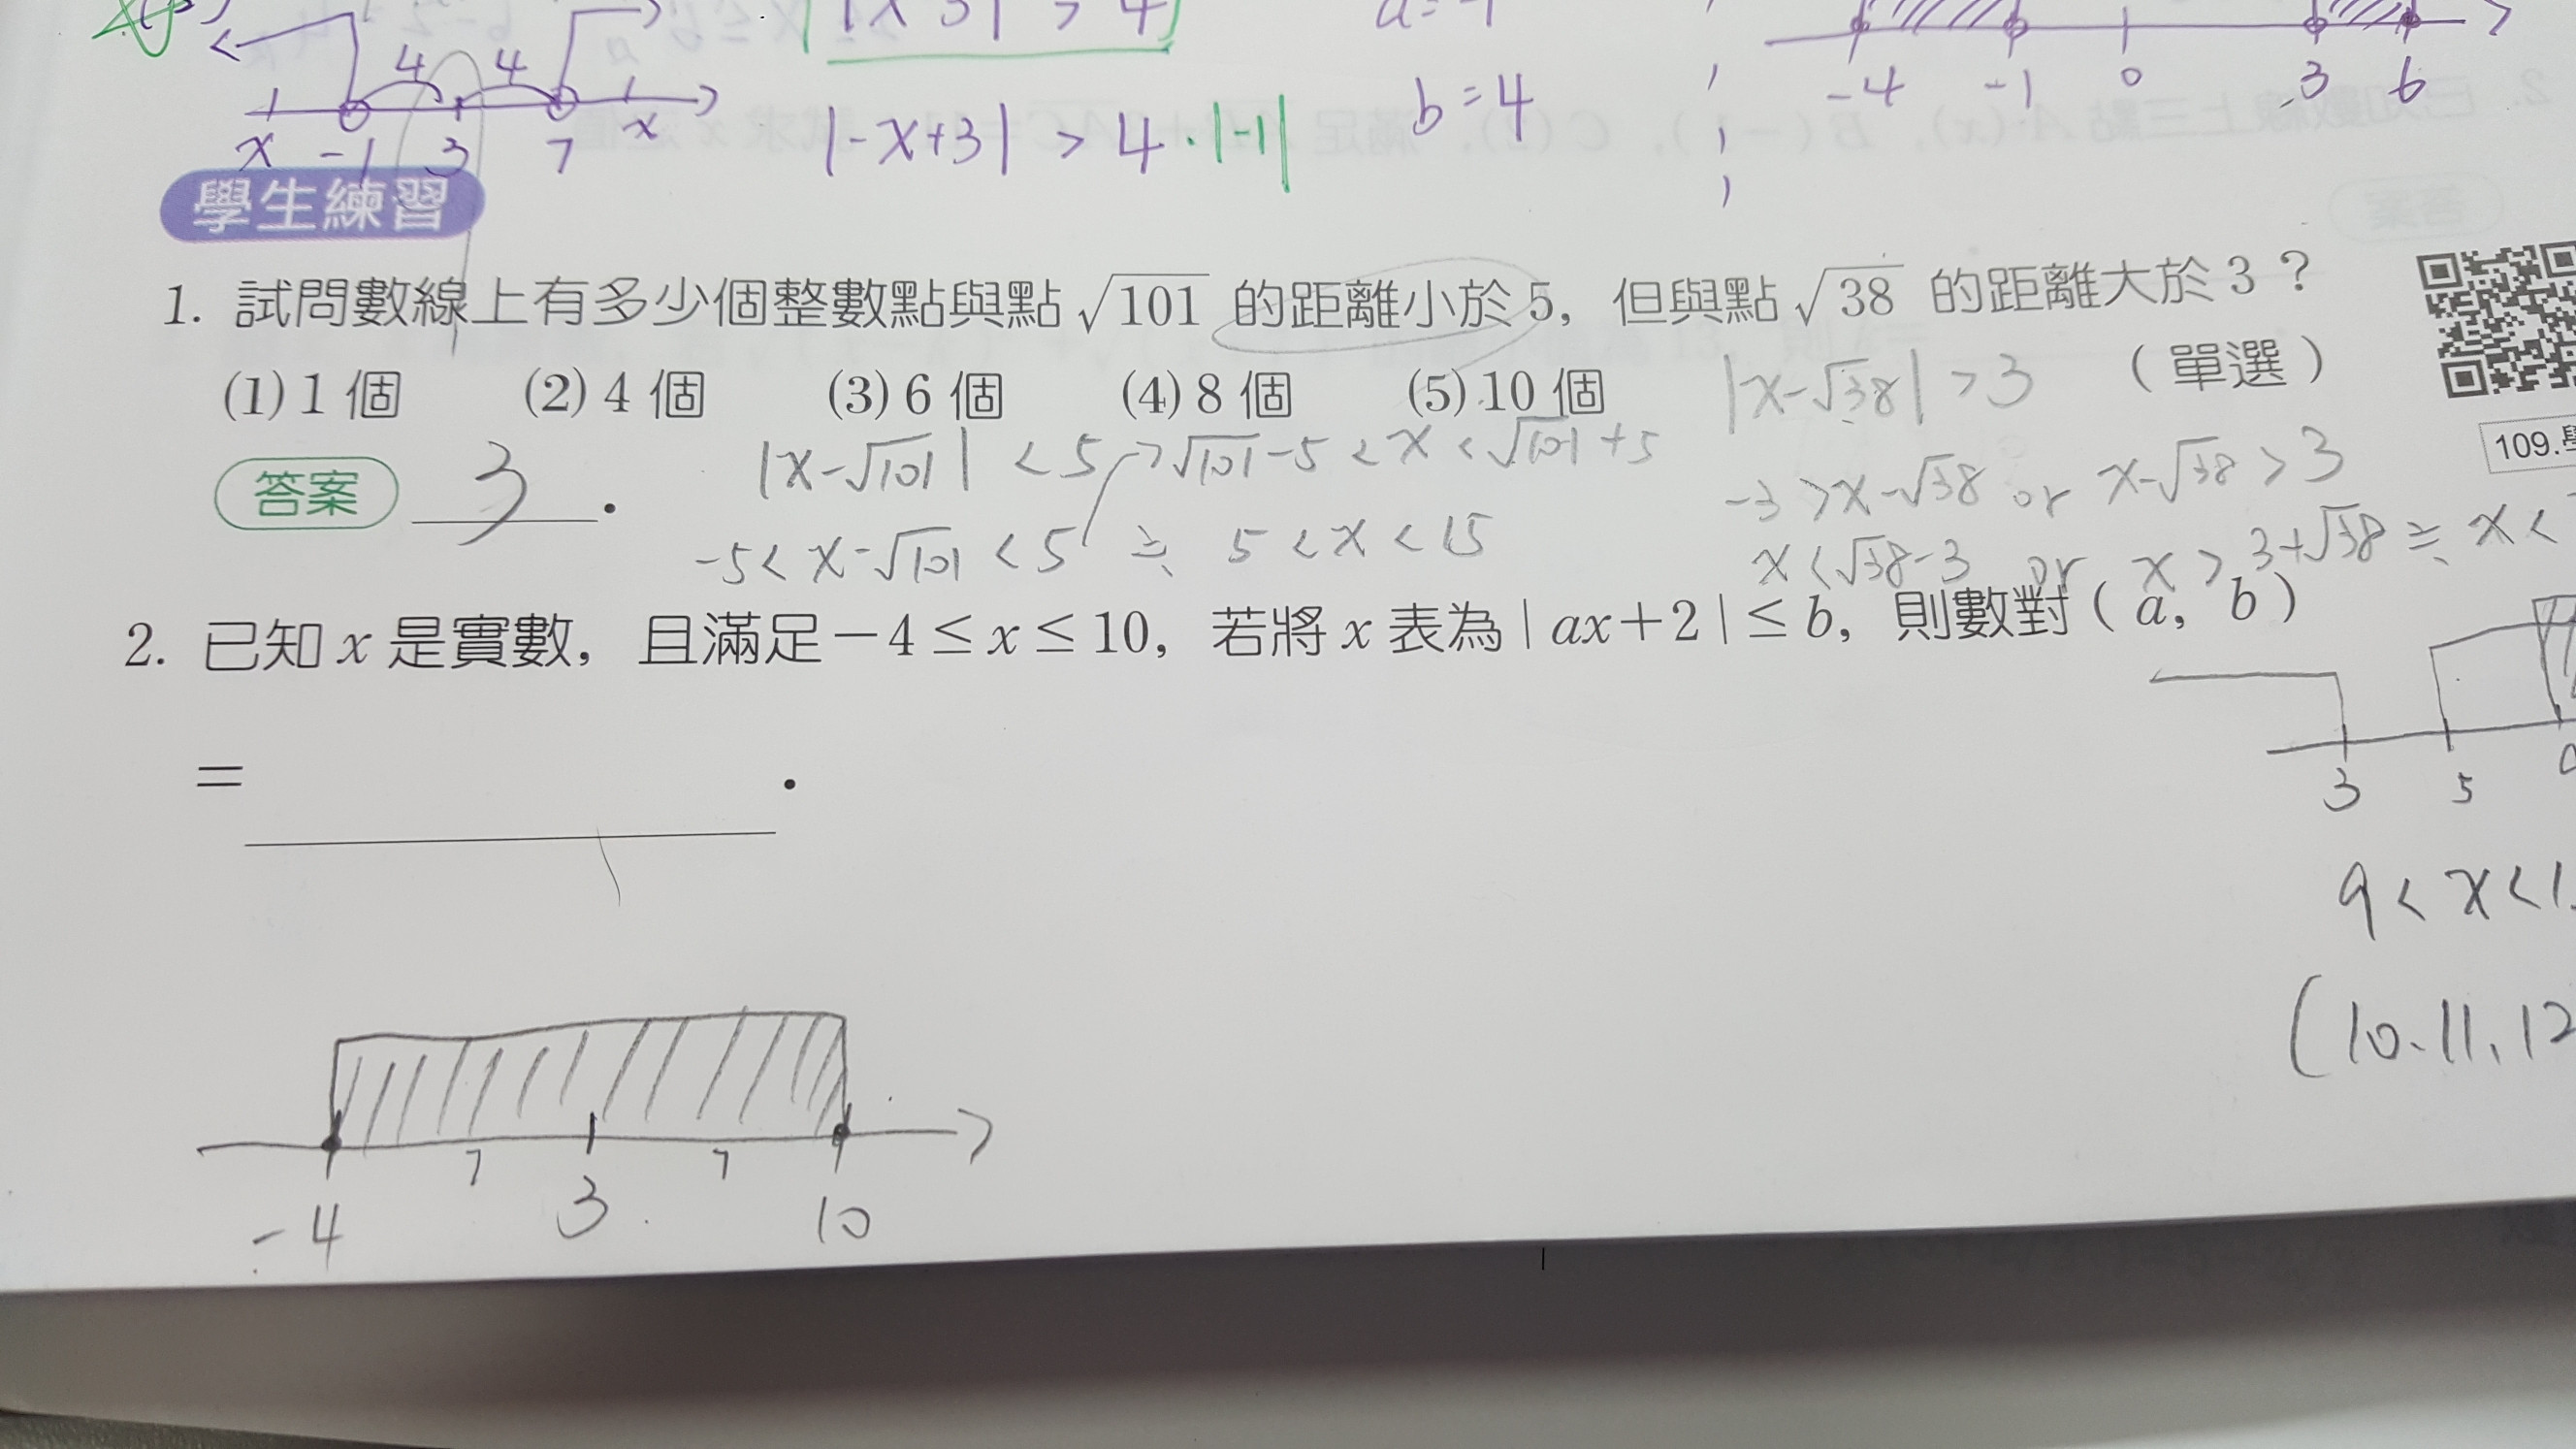 4 4
x -1 3 7 x
|-x+3| > 4·|-1|
b=4
-4 -1 0 3 6
學生練習
1. 試問數線上有多少個整數點與點√101 的距離小於5,但與點√38 的距離大於3?
(1)1個 (2)4個 (3)6個 (4)8個 (5)10個 (單選)
|x-√38| >3
109.
答案 3 .
|x-√101| < 5 → √101-5 < x < √101+5
-3 > x-√38 or x-√38 > 3
-5 < x-√101 < 5 ≒ 5 < x < 15
x < √38-3 or x > 3+√38 ≒ x <
2. 已知x是實數,且滿足-4≤x≤10,若將x表為|ax+2|≤b,則數對(a, b)
= .
3 5
9 < x < 1
(10、11、12
7 7
-4 3 10